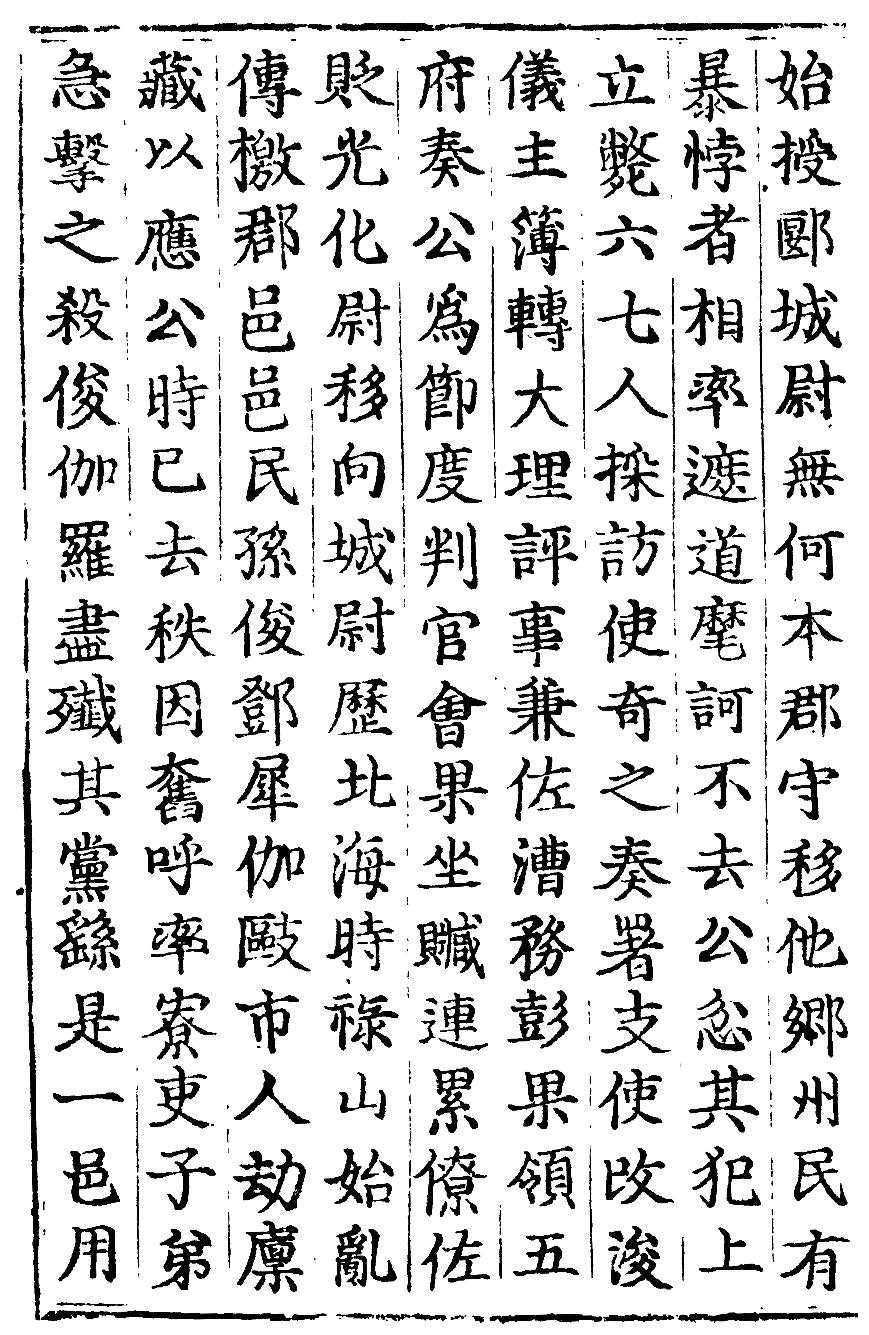 始授郾城尉無何本郡守移他鄉州民有
暴悖者相率遮道麾訶不去公忿其犯上
立斃六七人採訪使奇之奏署支使改浚
儀主簿轉大理評事兼佐漕務彭果領五
府奏公爲節度判官會果坐贓連累僚佐
貶光化尉移向城尉歷北海時祿山始亂
傳檄郡邑邑民孫俊鄧犀伽敺市人劫廩
藏以應公時已去秩因奮呼率寮吏子弟
急擊之殺俊伽羅盡殲其黨繇是一邑用